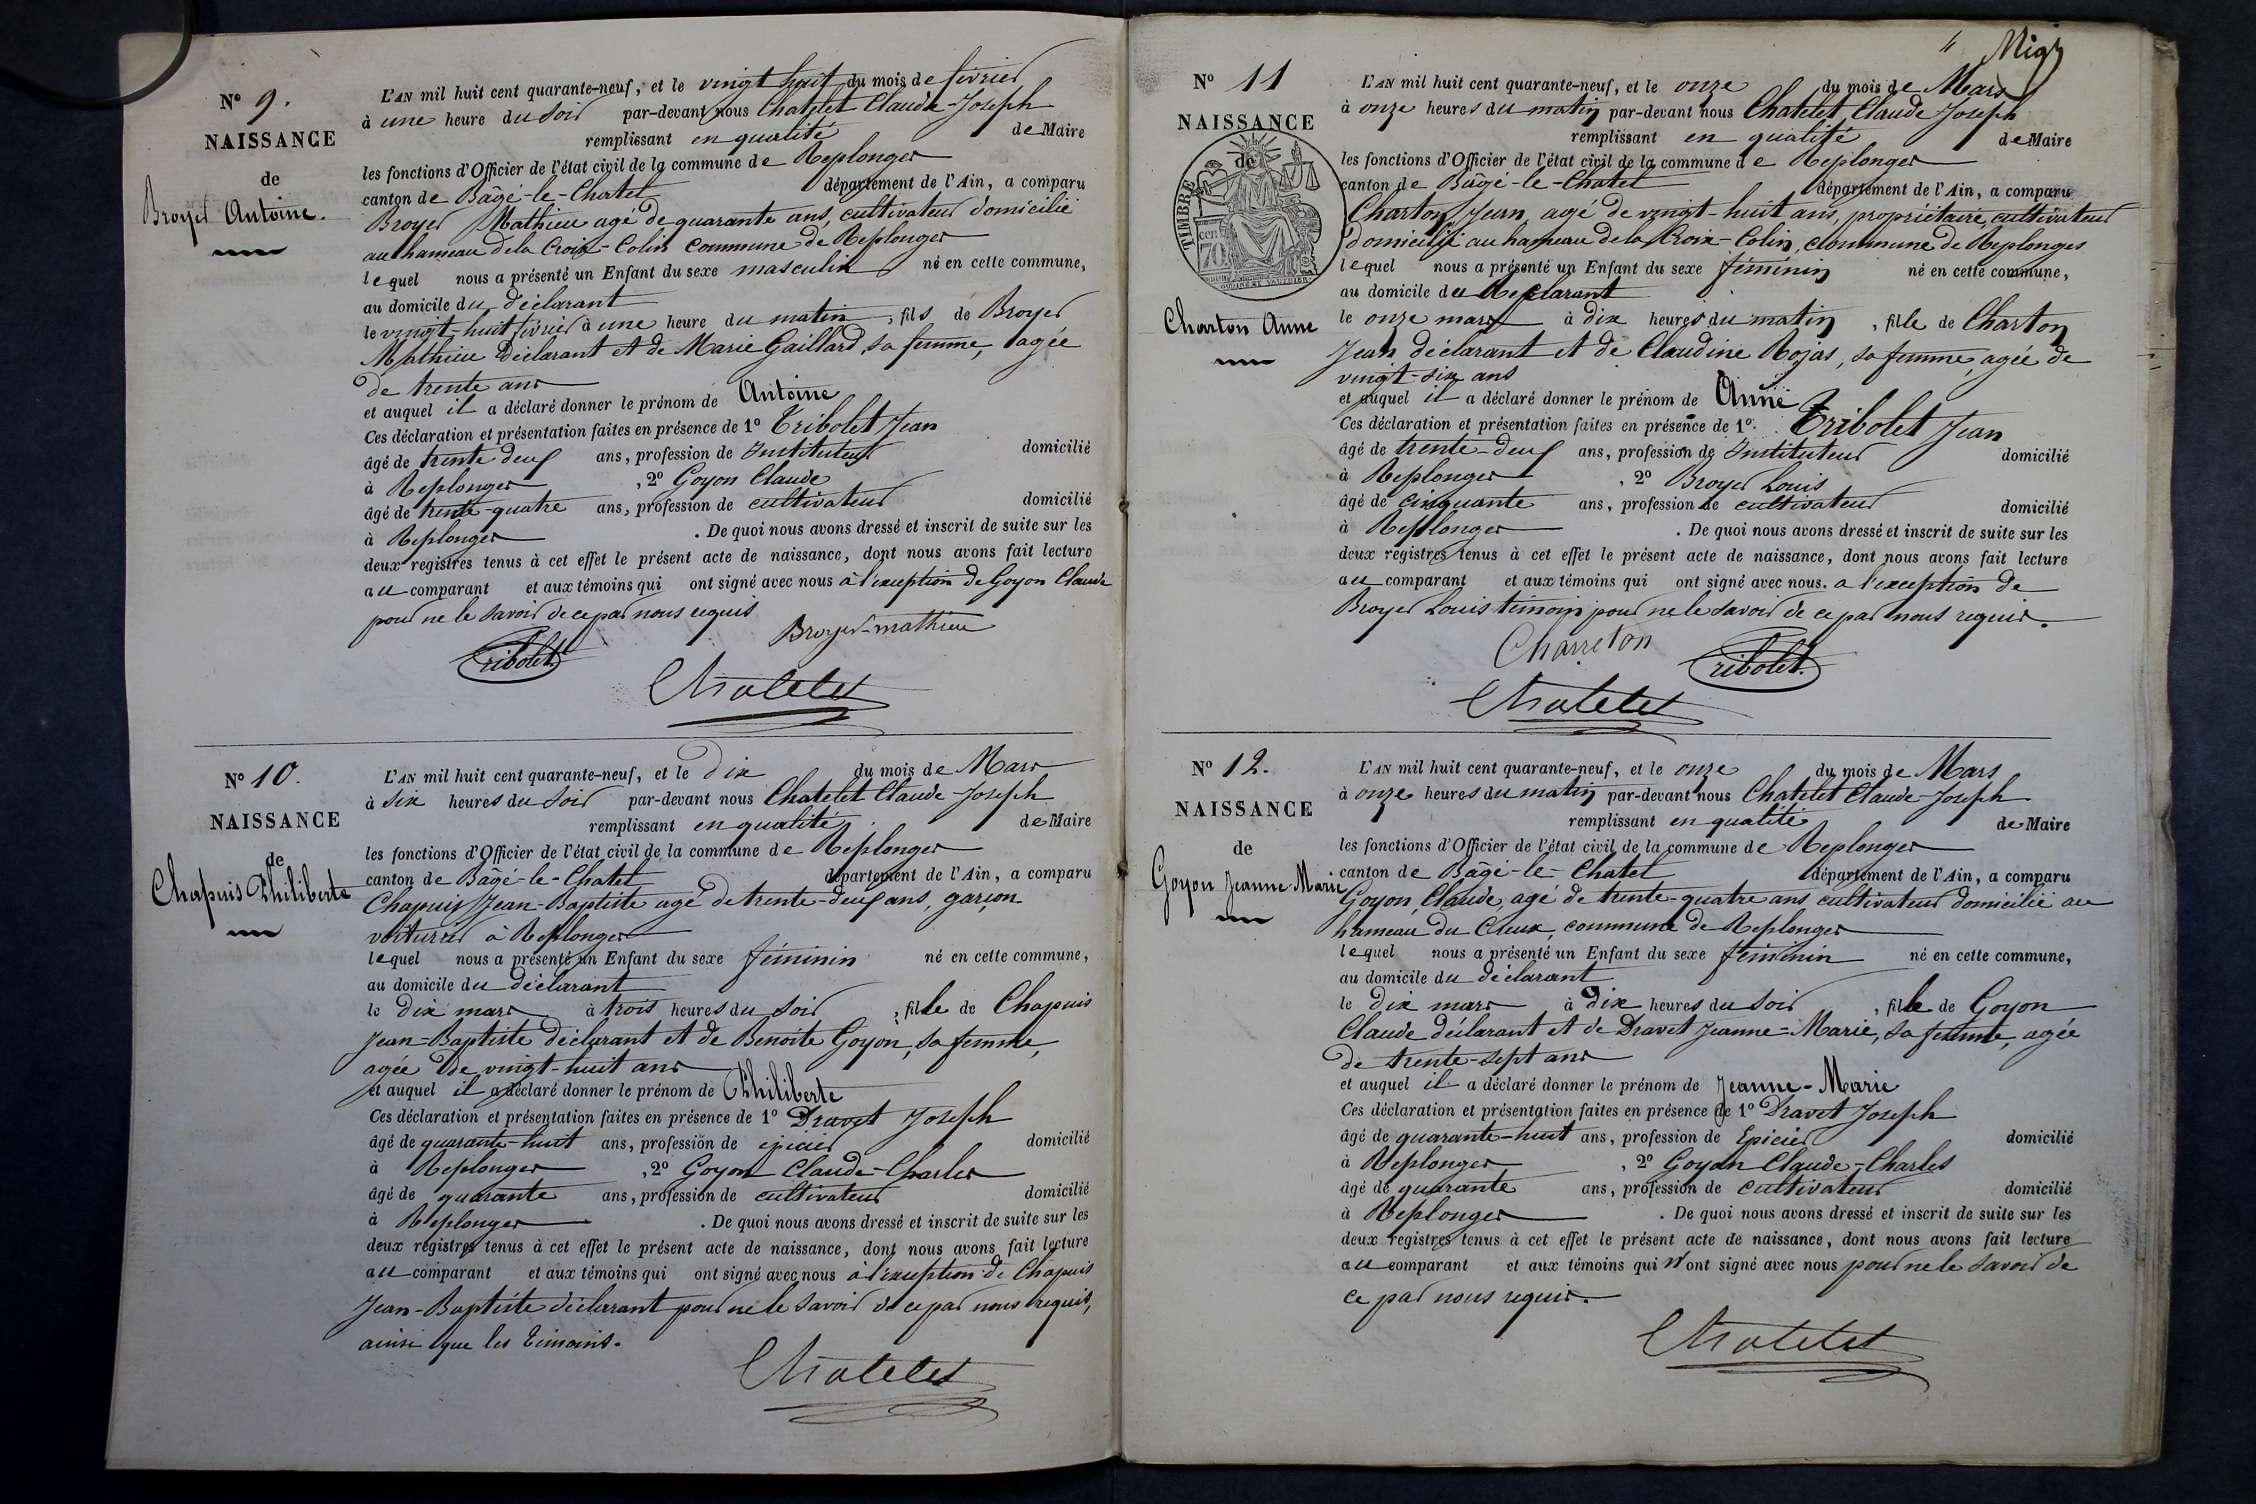 N° 9.
NAISSANCE
de
Broyer Antoine.
L'AN mil huit cent quarante-neuf, et le vingt huit du mois de février
à une heure du soir par-devant nous Chatelet Claude-Joseph
remplissant en qualité de Maire
les fonctions d'Officier de l'état civil de la commune de Replonges
canton de Bâgé-le-Chatel département de l'Ain, a comparu
Broyer Mathieu agé de quarante ans, cultivateur domicilié
au hameau de la Croix-Colin commune de Replonges
lequel nous a présenté un Enfant du sexe masculin né en cette commune,
au domicile du déclarant
le vingt-huit février à une heure du matin, fils de Broyer
Mathieu Déclarant et de Marie Gaillard, sa femme, agée
de trente ans
et auquel il a déclaré donner le prénom de Antoine
Ces déclaration et présentation faites en présence de 1° Tribolet Jean
âgé de trente deux ans, profession de Instituteur domicilié
à Replonges, 2° Goyon Claude
âgé de trente-quatre ans, profession de cultivateur domicilié
à Replonges. De quoi nous avons dressé et inscrit de suite sur les
deux registres tenus à cet effet le présent acte de naissance, dont nous avons fait lecture
au comparant et aux témoins qui ont signé avec nous à l'exception de Goyon Claude
pour ne le savoir de ce par nous requis
Broyer-mathieu
Tribolet
Chatelet
N° 10.
NAISSANCE
de
Chapuis Philiberte
L'AN mil huit cent quarante-neuf, et le dix du mois de Mars
à six heures du soir par-devant nous Chatelet Claude-Joseph
remplissant en qualité de Maire
les fonctions d'Officier de l'état civil de la commune de Replonges
canton de Bâgé-le-Chatel département de l'Ain, a comparu
Chapuis Jean-Baptiste agé de trente-deux ans, garçon
voiturier à Replonges
lequel nous a présenté un Enfant du sexe féminin né en cette commune,
au domicile du déclarant
le dix mars à trois heures du soir, fille de Chapuis
Jean-Baptiste déclarant et de Benoite Goyon, sa femme,
agée de vingt-huit ans
et auquel il a déclaré donner le prénom de Philiberte
Ces déclaration et présentation faites en présence de 1° Dravet Joseph
âgé de quarante-huit ans, profession de épicier domicilié
à Replonges, 2° Goyon Claude-Charles
âgé de quarante ans, profession de cultivateur domicilié
à Replonges. De quoi nous avons dressé et inscrit de suite sur les
deux registres tenus à cet effet le présent acte de naissance, dont nous avons fait lecture
au comparant et aux témoins qui ont signé avec nous à l'exception de Chapuis
Jean-Baptiste déclarant pour ne le savoir de ce par nous requis,
ainsi que les témoins.
Chatelet
N° 11
NAISSANCE
de
TIMBRE
cen
70
Charton Anne
L'AN mil huit cent quarante-neuf, et le onze du mois de Mars
à onze heures du matin par-devant nous Chatelet Claude Joseph
remplissant en qualité de Maire
les fonctions d'Officier de l'état civil de la commune de Replonges
canton de Bâgé-le-Chatel département de l'Ain, a comparu
Charton Jean, agé de vingt-huit ans, propriétaire, cultivateur
domicilié au hameau de la Croix-Colin, commune de Replonges
lequel nous a présenté un Enfant du sexe féminin né en cette commune,
au domicile du Declarant
le onze mars à dix heures du matin, fille de Charton
Jean déclarant et de Claudine Rojas, sa femme, agée de
vingt-six ans
et auquel il a déclaré donner le prénom de Anne
Ces déclaration et présentation faites en présence de 1° Tribolet Jean
âgé de trente-deux ans, profession de Instituteur domicilié
à Replonges, 2° Broyer Louis
âgé de cinquante ans, profession de cultivateur domicilié
à Replonges. De quoi nous avons dressé et inscrit de suite sur les
deux registres tenus à cet effet le présent acte de naissance, dont nous avons fait lecture
au comparant et aux témoins qui ont signé avec nous. a l'exception de
Broyer Louis témoin pour ne le savoir de ce par nous requis.
Charreton
Tribolet
Chatelet
N° 12.
NAISSANCE
de
Goyon Jeanne-Marie
L'AN mil huit cent quarante-neuf, et le onze du mois de Mars
à onze heures du matin par-devant nous Chatelet Claude-Joseph
remplissant en qualité de Maire
les fonctions d'Officier de l'état civil de la commune de Replonges
canton de Bâgé-le-Chatel département de l'Ain, a comparu
Goyon, Claude, agé de trente-quatre ans cultivateur domicilié au
hameau du Creux, commune de Replonges
lequel nous a présenté un Enfant du sexe féminin né en cette commune,
au domicile du déclarant
le dix mars à dix heures du soir, fille de Goyon
Claude déclarant et de Dravet Jeanne-Marie, sa femme, agée
de trente-sept ans
et auquel il a déclaré donner le prénom de Jeanne-Marie
Ces déclaration et présentation faites en présence de 1° Dravet Joseph
âgé de quarante-huit ans, profession de Epicier domicilié
à Replonges, 2° Goyon Claude-Charles
âgé de quarante ans, profession de cultivateur domicilié
à Replonges. De quoi nous avons dressé et inscrit de suite sur les
deux registres tenus à cet effet le présent acte de naissance, dont nous avons fait lecture
au comparant et aux témoins qui n'ont signé avec nous pour ne le savoir de
ce par nous requis.
Chatelet